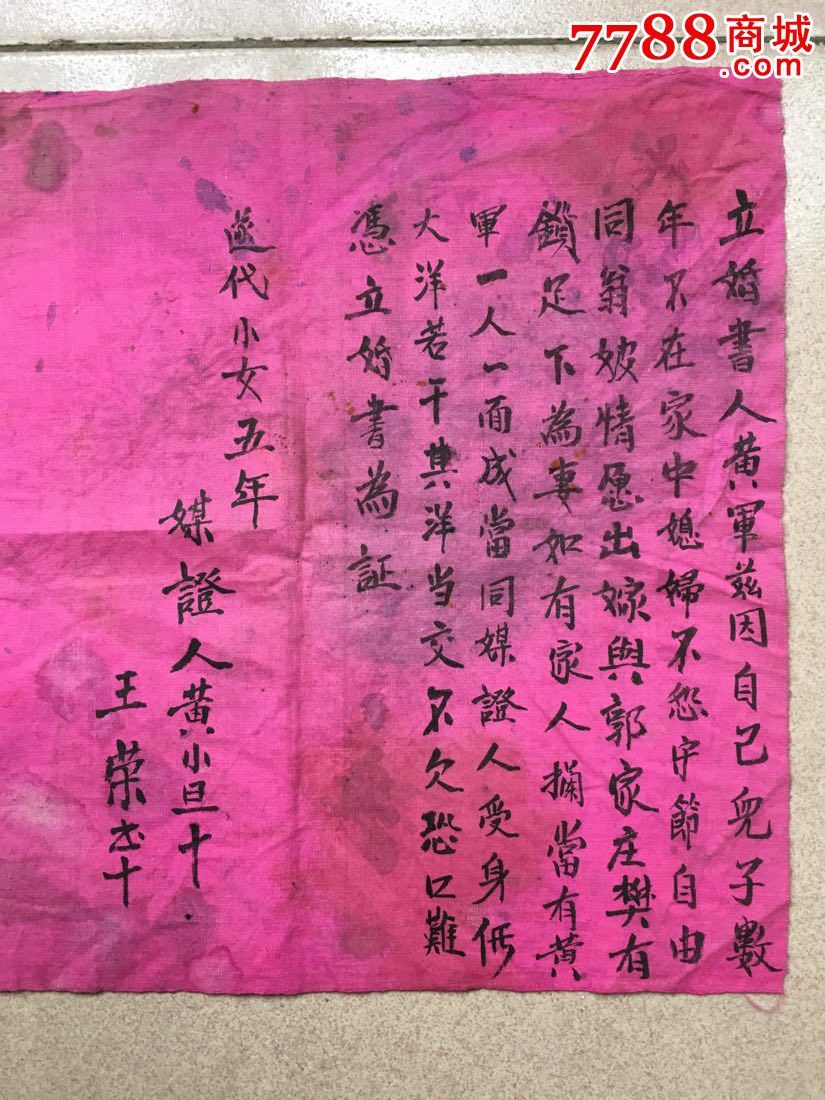 7788商城
.com
立婚書人黄軍兹因自己兒子數
年不在家中媳婦不怨守節自由
同翁婆情愿出嫁與郭家庄樊有
鎖足下為妻如有家人攔當有黄
軍一人一面成當同媒證人受身價
大洋若干其洋当交不欠恐口難
憑立婚書為証
代小女五年
媒證人黄小旦十
王荣十